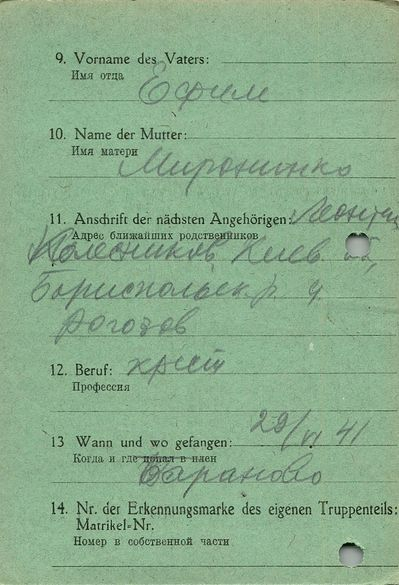 9. Vorname des Vaters:
Имя отца
Ефим
10. Name der Mutter:
Имя матери
Мироненко
11. Anschrift der nächsten Angehörigen:
Адрес ближайших родственников
Колесников Киев. об,
Бориспольск. р. ч
Рогозов
12. Beruf: крест
Профессия
13 Wann und wo gefangen: 29/VI 41
Когда и где попал в плен
Бараново
14. Nr. der Erkennungsmarke des eigenen Truppenteils:
Matrikel-Nr.
Номер в собственной части